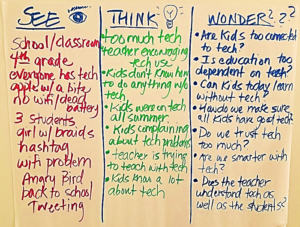 SEE
school/classroom
4th grade
everyone has tech
apple w/a bite
no wifi/dead
battery
3 students
girl w/braids
hashtag
wifi problem
Angry Bird
back to school
Tweeting
THINK
too much tech
teacher encouraging
tech use
Kids don't know how
to do anything w/o
tech
Kids were on tech
all summer
Kids complaining
about tech problems
teacher is trying
to teach with tech
Kids know a lot
about tech
WONDER? ? ?
Are Kids too connected
to tech?
Is education too
dependent on tech?
Can Kids today learn
without tech?
How do we make sure
all Kids have good tech
Do we trust tech
too much?
Are we smarter with
tech?
Does the teacher
understand tech as
well as the students?